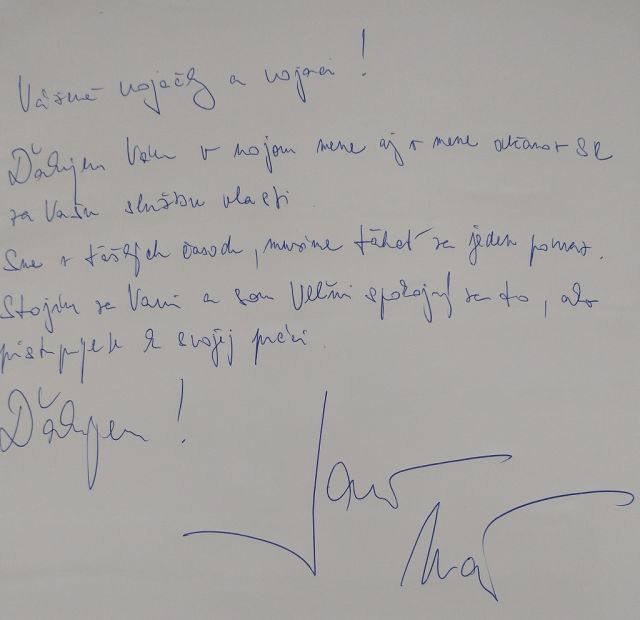 Vážené vojačky a vojaci!
Ďakujem Vám v mojom mene aj v mene občanov SR
za Vašu službu vlasti.
Sme v ťažkých časoch, musíme ťahať za jeden povraz.
Stojím za Vami a som veľmi spokojný za to, ako
pristupujete k svojej práci.
Ďakujem!